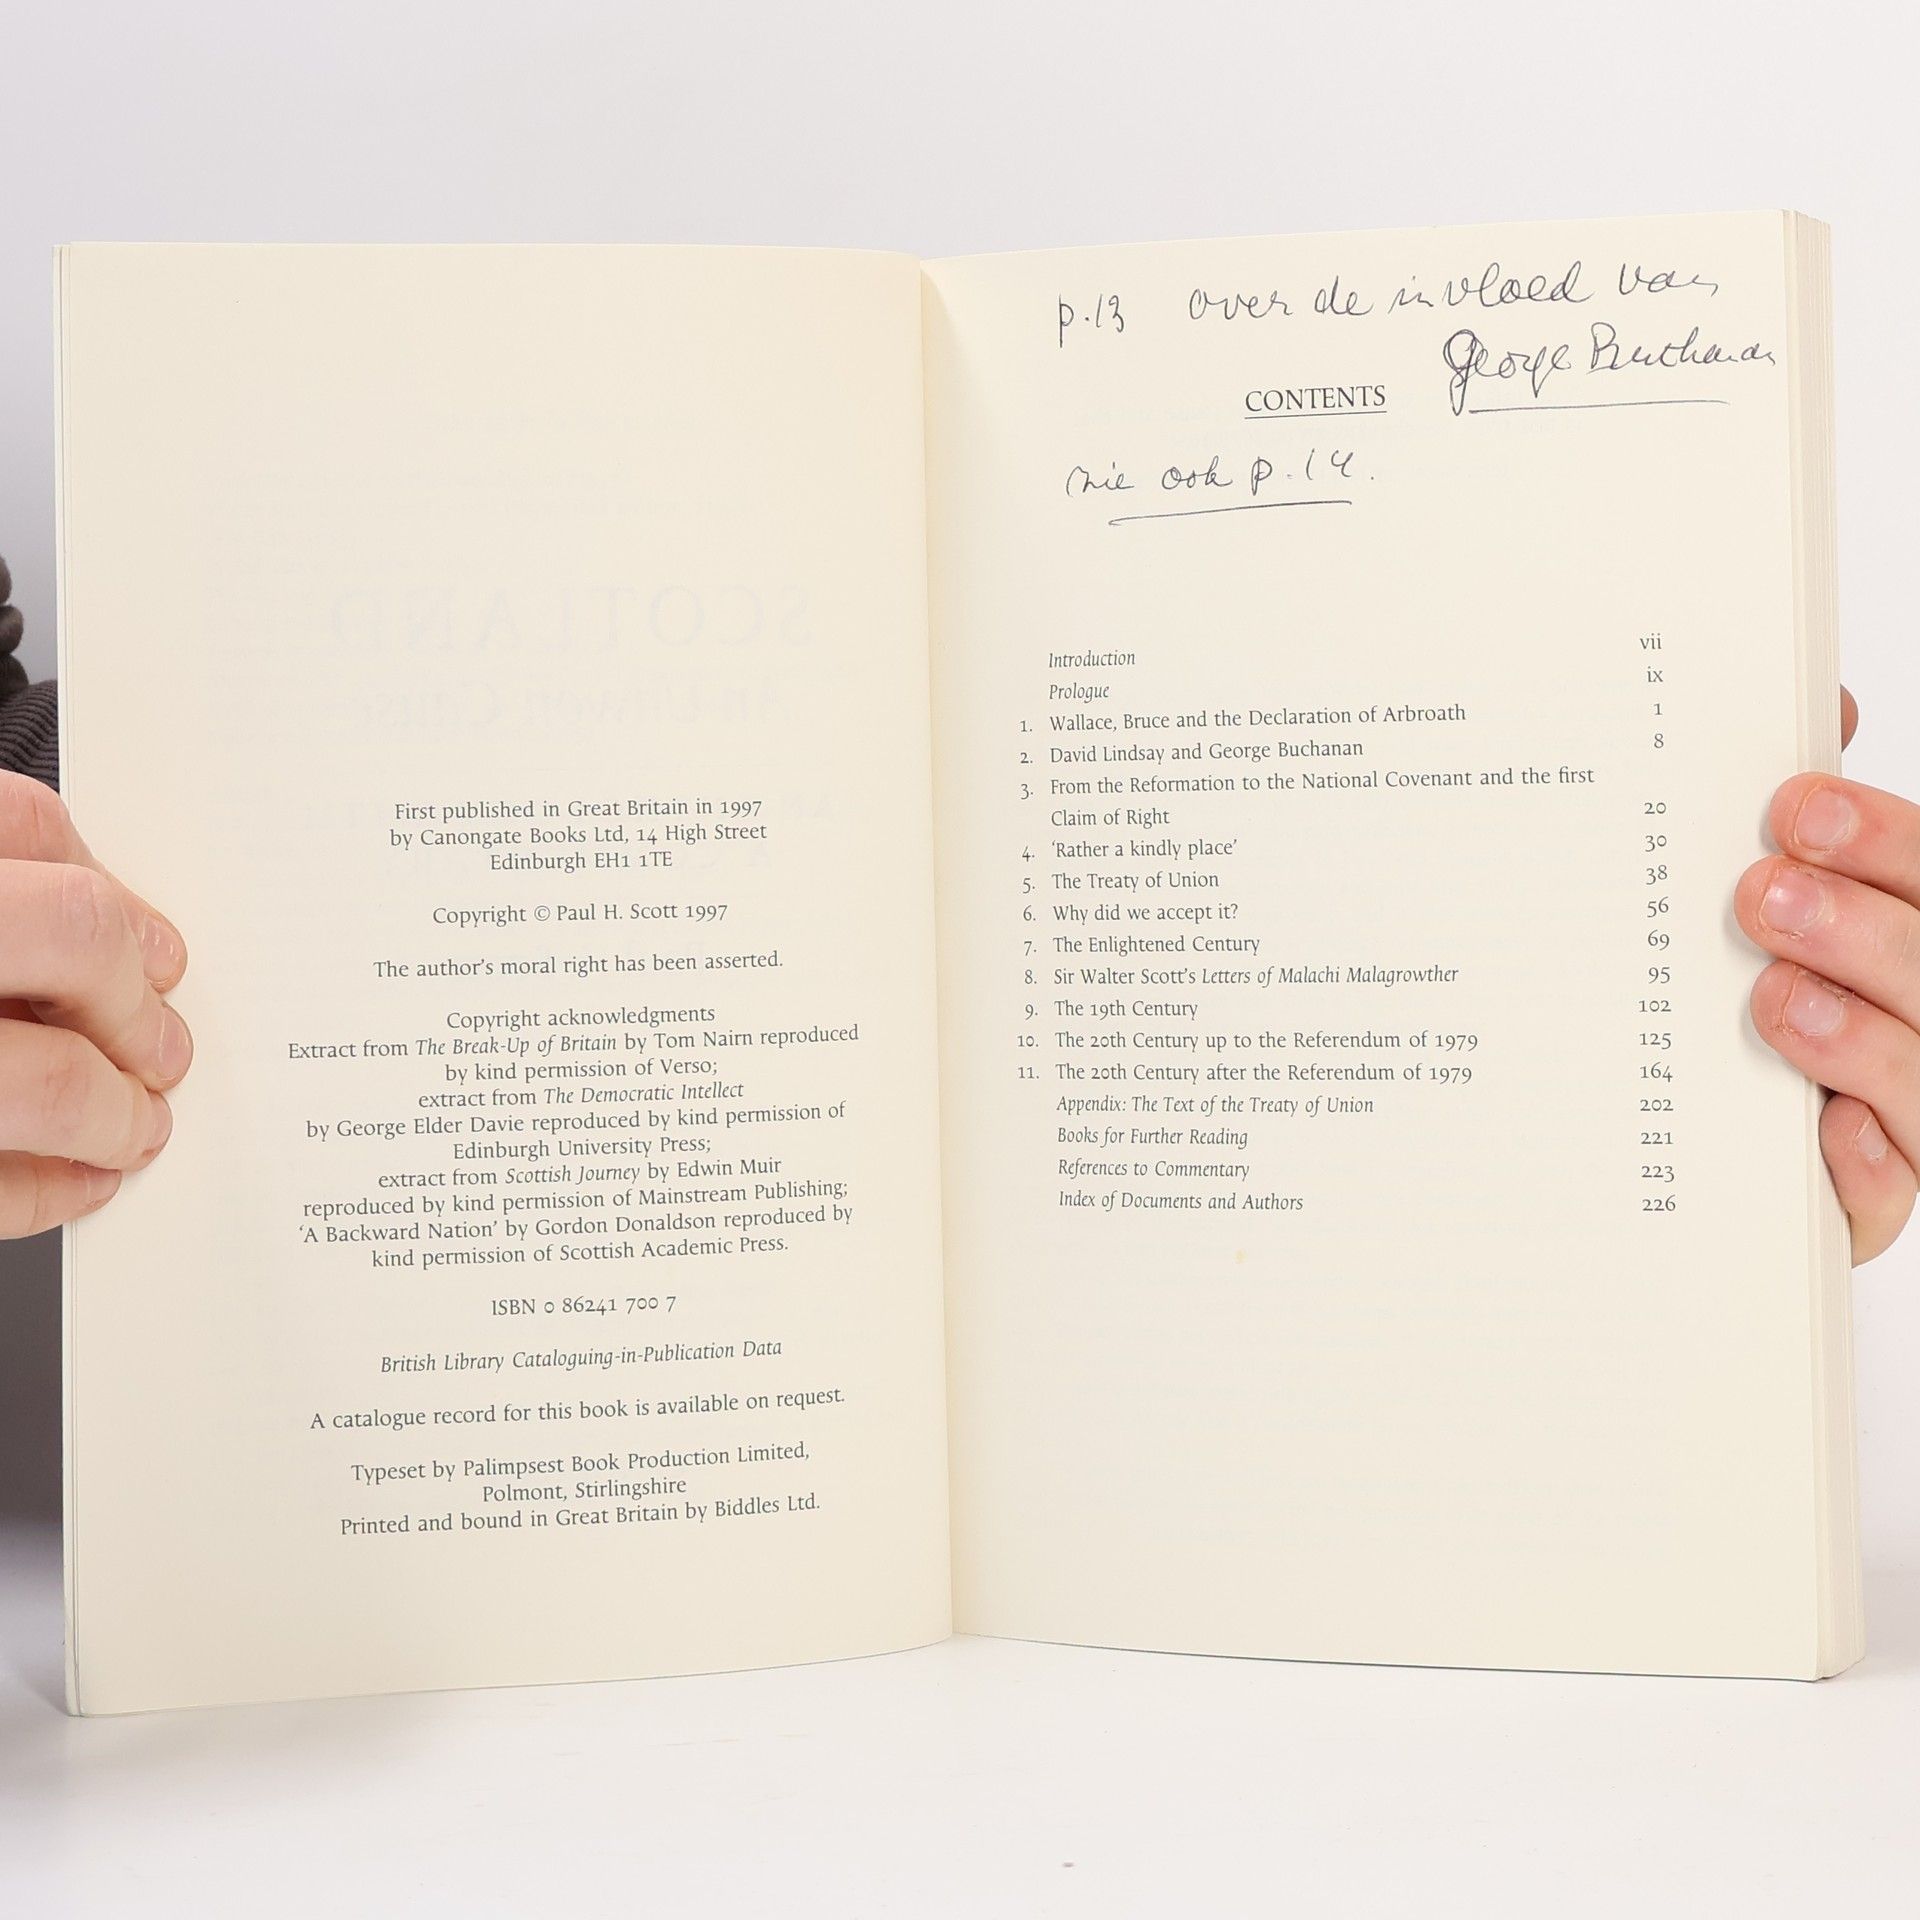 First published in Great Britain in 1997
by Canongate Books Ltd, 14 High Street
Edinburgh EH1 1TE
Copyright © Paul H. Scott 1997
The author's moral right has been asserted.
Copyright acknowledgments
Extract from The Break-Up of Britain by Tom Nairn reproduced
by kind permission of Verso;
extract from The Democratic Intellect
by George Elder Davie reproduced by kind permission of
Edinburgh University Press;
extract from Scottish Journey by Edwin Muir
reproduced by kind permission of Mainstream Publishing;
'A Backward Nation' by Gordon Donaldson reproduced by
kind permission of Scottish Academic Press.
ISBN 0 86241 700 7
British Library Cataloguing-in-Publication Data
A catalogue record for this book is available on request.
Typeset by Palimpsest Book Production Limited,
Polmont, Stirlingshire
Printed and bound in Great Britain by Biddles Ltd.
p.13 over de invloed van
George Buchanan
CONTENTS
zie ook p.14.
Introduction vii
Prologue ix
1. Wallace, Bruce and the Declaration of Arbroath 1
2. David Lindsay and George Buchanan 8
3. From the Reformation to the National Covenant and the first
Claim of Right 20
4. 'Rather a kindly place' 30
5. The Treaty of Union 38
6. Why did we accept it? 56
7. The Enlightened Century 69
8. Sir Walter Scott's Letters of Malachi Malagrowther 95
9. The 19th Century 102
10. The 20th Century up to the Referendum of 1979 125
11. The 20th Century after the Referendum of 1979 164
Appendix: The Text of the Treaty of Union 202
Books for Further Reading 221
References to Commentary 223
Index of Documents and Authors 226